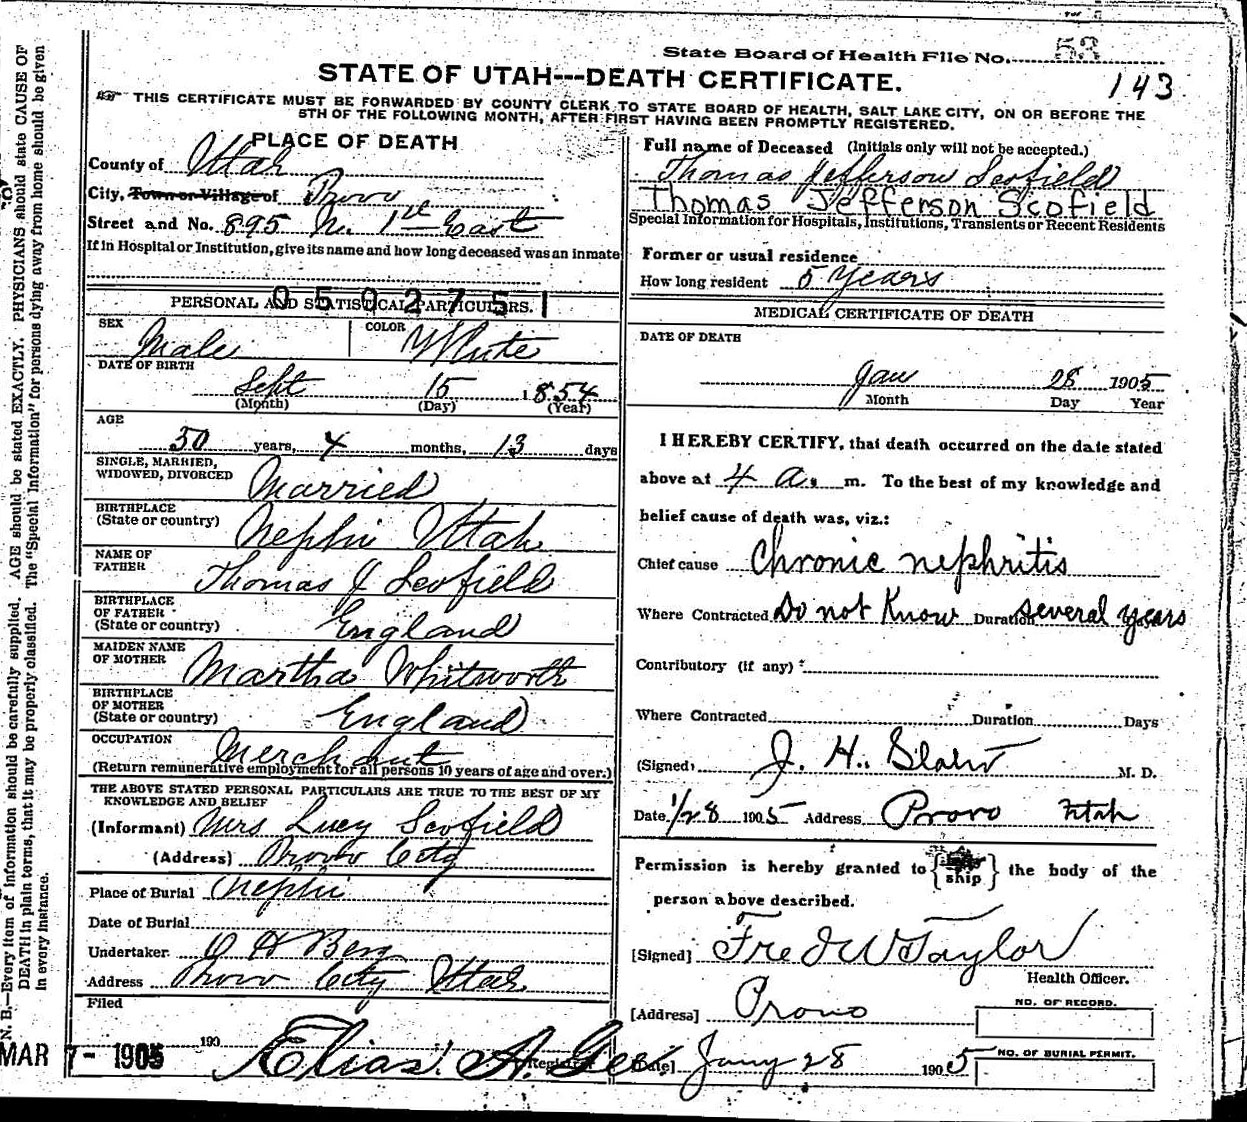 State Board of Health File No. 53
STATE OF UTAH---DEATH CERTIFICATE.
143
THIS CERTIFICATE MUST BE FORWARDED BY COUNTY CLERK TO STATE BOARD OF HEALTH, SALT LAKE CITY, ON OR BEFORE THE
5TH OF THE FOLLOWING MONTH, AFTER FIRST HAVING BEEN PROMPTLY REGISTERED.
PLACE OF DEATH
County of Utah
City, Town or Village of Provo
Street and No. 895 N. 1st East
If in Hospital or Institution, give its name and how long deceased was an inmate
0502751
PERSONAL AND STATISTICAL PARTICULARS.
SEX Male
COLOR White
DATE OF BIRTH
Sept 15 1854
(Month) (Day) (Year)
AGE
50 years, 4 months, 13 days
SINGLE, MARRIED,
WIDOWED, DIVORCED Married
BIRTHPLACE
(State or country) Nephi Utah
NAME OF
FATHER Thomas J Scofield
BIRTHPLACE
OF FATHER
(State or country) England
MAIDEN NAME
OF MOTHER Martha Whitworth
BIRTHPLACE
OF MOTHER
(State or country) England
OCCUPATION Merchant
(Return remunerative employment for all persons 10 years of age and over.)
THE ABOVE STATED PERSONAL PARTICULARS ARE TRUE TO THE BEST OF MY
KNOWLEDGE AND BELIEF
(Informant) Mrs Lucy Scofield
(Address) Provo City
Place of Burial Nephi
Date of Burial
Undertaker. O H Berg
Address Provo City Utah
Filed
MAR 7 - 1905 190
Elias A. Gee
Registrar
Full name of Deceased (Initials only will not be accepted.)
Thomas Jefferson Scofield
Thomas Jefferson Scofield
Special Information for Hospitals, Institutions, Transients or Recent Residents
Former or usual residence
How long resident 5 years
MEDICAL CERTIFICATE OF DEATH
DATE OF DEATH
Jan 28 1905
Month Day Year
I HEREBY CERTIFY, that death occurred on the date stated
above at 4 a. m. To the best of my knowledge and
belief cause of death was, viz.:
Chief cause Chronic nephritis
Where Contracted Do not Know Duration several years
Contributory (if any)
Where Contracted Duration Days
(Signed) J. H. M. D.
Date 1/28 1905 Address Provo Utah
Permission is hereby granted to { ship } the body of the
person above described.
[Signed] Fred W Taylor
Health Officer.
[Address] Provo
NO. OF RECORD.
[Date] Jany 28 1905
NO. OF BURIAL PERMIT.
N. B.—Every item of information should be carefully supplied. AGE should be stated EXACTLY. PHYSICIANS should state CAUSE OF
DEATH in plain terms, that it may be properly classified. The "Special Information" for persons dying away from home should be given
in every instance.